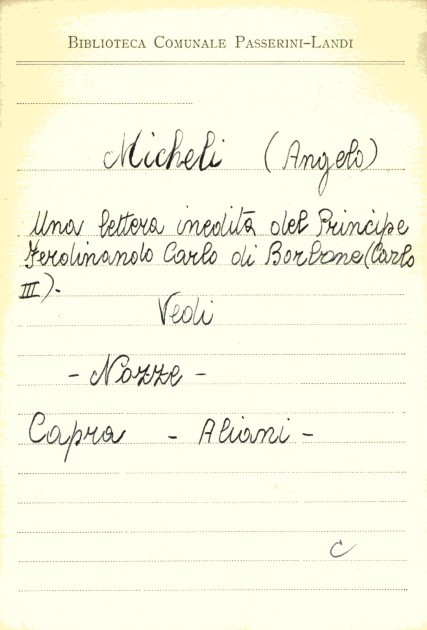 BIBLIOTECA COMUNALE PASSERINI-LANDI
Micheli (Angelo)
Una lettera inedita del Principe
Ferdinando Carlo di Borbone (Carlo
III).
Vedi
- Nozze -
Capra - Aliani -
C